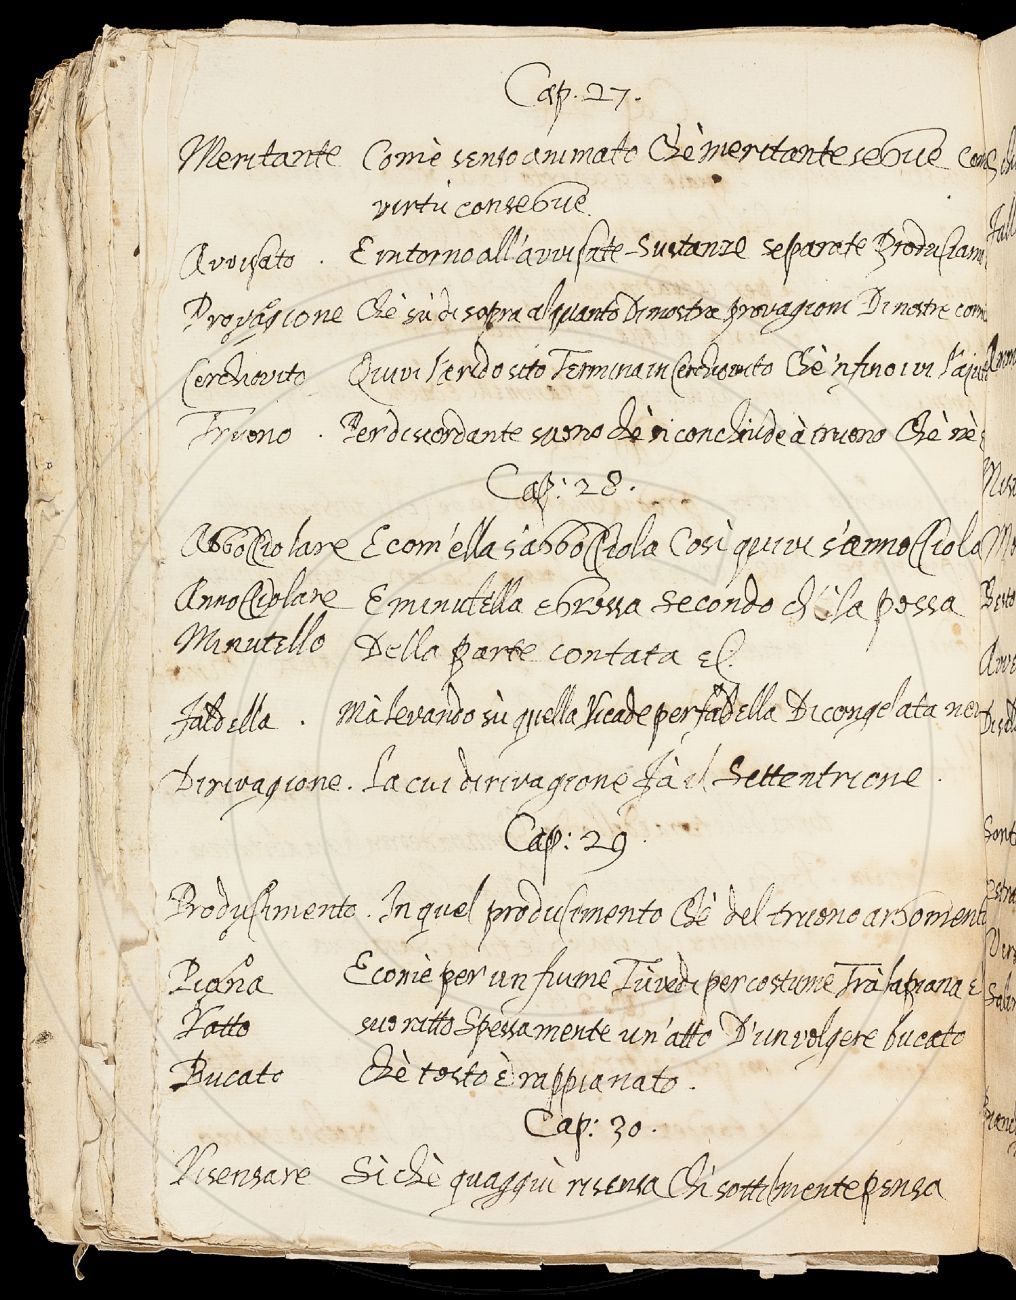 Cap. 27.
Meritante Com'è senso animato Ch'è meritante segue Com
virtù consegue
Avvisato . E intorno all'avvisate sustanze separate Produsiam
Provagione Ch'è sù di sopra alquanto Dimostra provagioni Di nostre
Cerchiovito Quivi l'arido sito Termina in Cerchiovito Ch'è 'nfino ivi
Truono . Per discordante suono ch'è si conchiude à truono Ch'è
Cap: 28.
Abbocciolare E com'ella s'abbocciola Così quivi s'annocciola
Annocciolare E minutella e grossa secondo ch'è la possa
Minutello Della parte contata
Faldella . Mà levando sù quella Ricade per faldella Di congelata
Dirivagione . La cui dirivagione Fà il Settentrione .
Cap: 29
Produsimento . In quel produsimento Ch'è del truono argomento
Piana E com'è per un fiume Tù vedi per costume Trà la piana
Ratto suo ratto Spessamente un'atto D'un volgere bucato
Bucato Ch'è tosto è rappianato .
Cap: 30.
Risensare Sì ch'è quaggiù risensa Chi sottilmente pensa